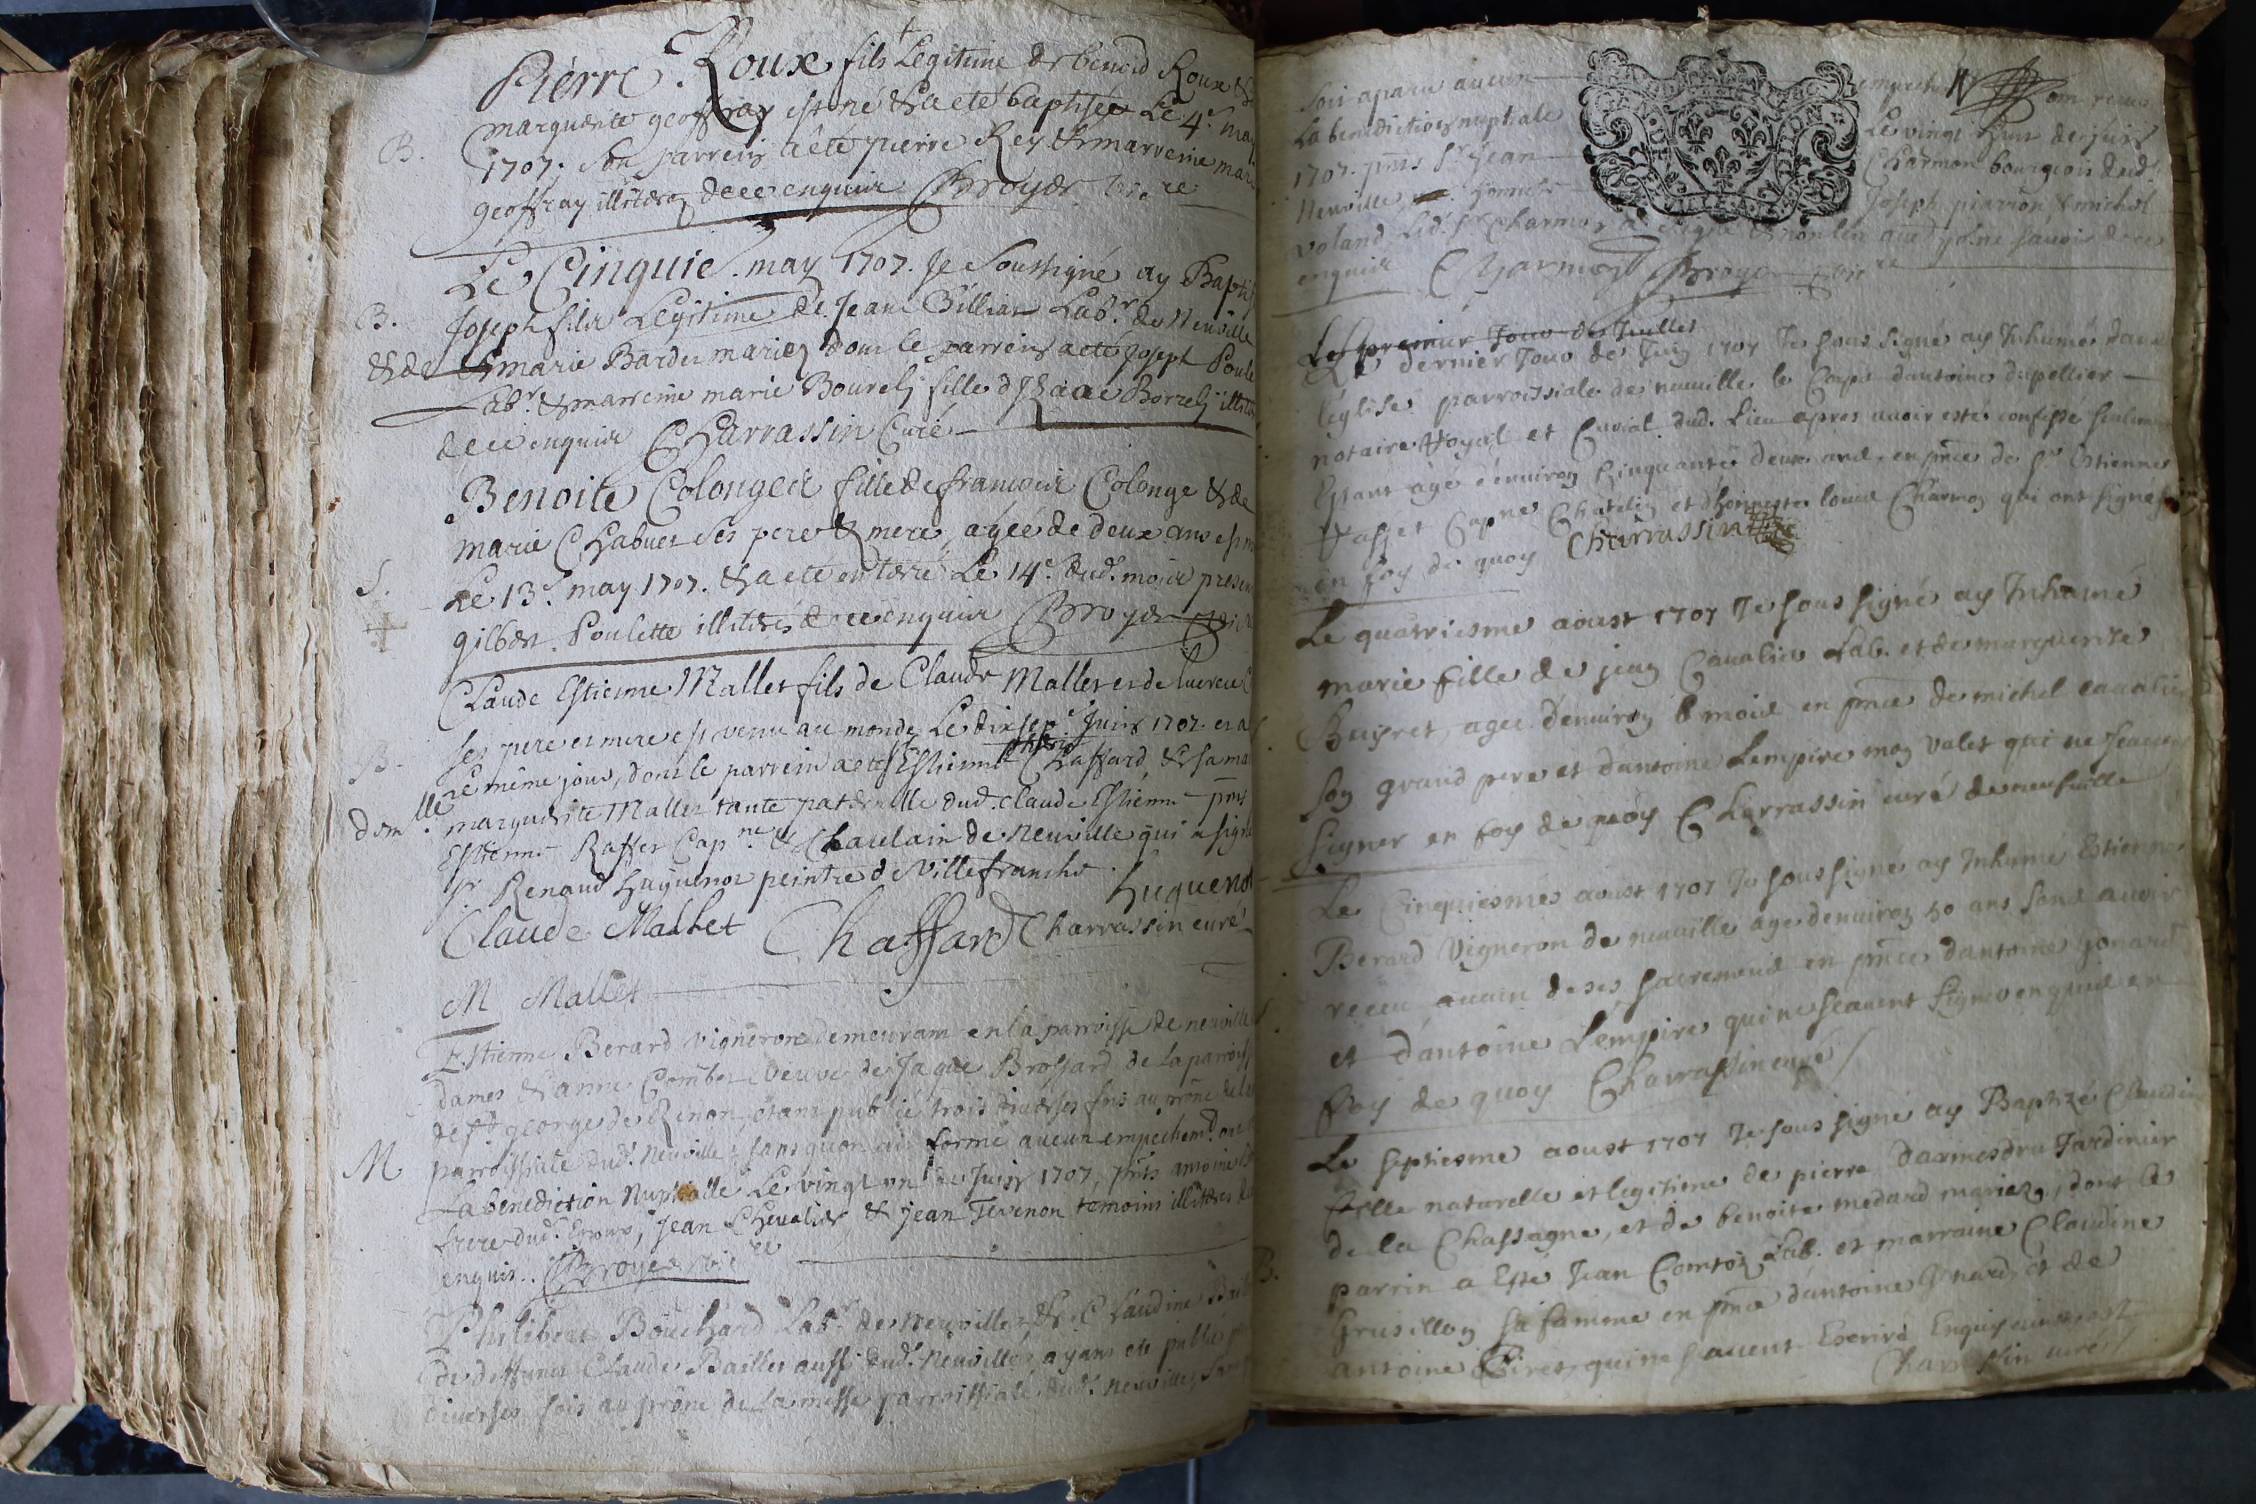 Pierre Roux fils Legitime de benoid Roux &
marguerite geoffray est né & a eté baptisée Le 4e may
B.
1707. Son parrein a eté pierre Rey & marreine mar
geoffray illiteres de ce enquis Broyer vic.re
Le Cinquie. may 1707. Je Soussigné ay Bapti
B.
Joseph fils Legitime de Jean Billiar Labr. de Neuville
& de marie Bardet mariez dont le parrein a eté Joseph Poule
Labr. & marreine marie Bourely fille d'Isaac Borrely illit
de ce enquis Charrassin Curé
Benoite Colonged fille de francois Colonge & de
marie Chabuet ses pere & mere, agée de deux ans est m
S.
Le 13e. may 1707. & a eté enterré Le 14e. dud. mois presen
gilber. Poulette illiterés de ce enquis Broyer vic
Claude Estienne Mallet fils de Claude Mallet et de lucrece
ses pere et mere est venu au monde Le dix sepe. Juin 1707. et a
B.
le même jour, dont le parrein a eté Estienne Chaffard, & sa ma
demlle. marguerite Mallet tante paternelle dud. Claude Estienne pnt
Estienne Raffet Capne. & Chatelain de Neuville qui a signé
Sr. Renaud huguenot peintre de Villefranche.
huguenot
Claude Mallet Chaffard Charrassin curé
M Mallet
Estienne Berard vigneron demeurant en la parroisse de neuville
dames & anne Combet veuve de Jaque Brossard de la parroisse
de St. george de Renon, étant publié trois diverses fois au prône de la
M
parroissiale dud. Neuville, sans quon ait formé aucun empechemt. ont
La benediction Nuptialle Le vingt un de Juin 1707, pnts antoine
frere dud. Epoux, Jean Chevalier & jean Tevenon temoins illiteres de
enquis. Broyer vic.re
Philibert Bouchard Labr. de Neuville & Claudine Baill
de deffunct Claude Baillet aussi dud. Neuville, ayant eté publié
diverses fois au prône de La messe parroissiale dud. Neuville, sans
soit aparu aucun empeche ont receu
La benediction nuptiale Le vingt huit de juin
1707. pnts Sr. Jean Charmon bourgeois dud.
Neuville, Joseph piarron, & michel
voland, led. Sr. Charmon a signé & non les autres pour ne savoir de ce
enquis Charmon Broyer vic.re
Le premier Jour de Juillet
Le dernier Jour de Juin 1707 Je sous signé ay Inhumé dans
léglise parroissiale de neuville le Corps dantoine dupellier
notaire Royal et Curial dud. Lieu apres avoir esté confessé seulem
Estant agé d'environ Cinquante deux ans, en pnce de Sr Estienne
Raffet Capne Chatelin et d'honneste louis Charmon qui ont signé
en foy de quoy Charrassin
Le quatriesme aoust 1707 Je sous signé ay Inhumé
marie fille de jean Cavalier Lab. et de marguerite
Buyret, agee d'environ 6 mois en pnce de michel cavalier
son grand pere et d'antoine Lempire mon valet qui ne scavent
signer en foy de quoy Charrassin curé de neufville
Le Cinquiesme aoust 1707 Je sous signé ay Inhumé Estienne
Berard Vigneron de neuville age denviron 50 ans sans avoir
receu aucun de ses sacremens en pnce dantoine gonard
et d'antoine Lempire qui ne scavent signer enquis en
foy de quoy Charrassin curé
Le septiesme aoust 1707 Je sous signé ay Baptizé Claudin
fille naturelle et legitime de pierre darmesdru Jardinier
de la Chassagne, et de benoite medard mariez, dont le
B.
parrin a Este Jean Comton Lab. et marraine Claudine
Grusillon sa famme en pnce d'antoine gonard, et de
antoine Ciret, qui ne scavent Escrire Enquis
Charrassin curé